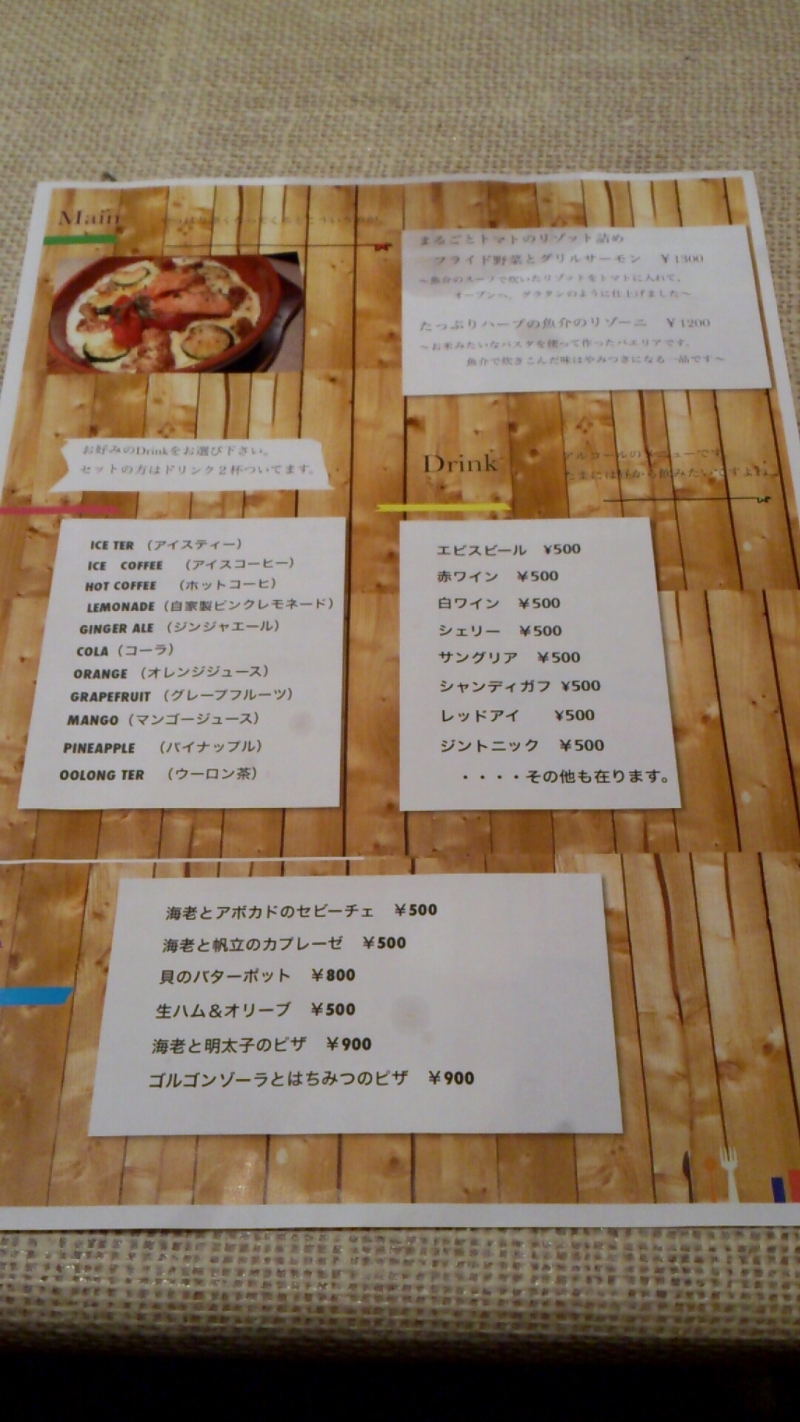 Main
まるごとトマトのリゾット詰め
フライド野菜とグリルサーモン ￥1300
～魚介のスープで炊いたリゾットをトマトに入れて、
オーブンへ、グラタンのように仕上げました～
たっぷりハーブの魚介のリゾーニ ￥1200
～お米みたいなパスタを使って作ったパエリアです。
魚介で炊きこんだ味はやみつきになる一品です～
お好みのDrinkをお選び下さい。
セットの方はドリンク２杯ついてます。
Drink
アルコールのメニューです。
たまには昼から飲みたいですよね
ICE TER （アイスティー）
ICE COFFEE （アイスコーヒー）
HOT COFFEE （ホットコーヒ）
LEMONADE（自家製ピンクレモネード）
GINGER ALE （ジンジャエール）
COLA（コーラ）
ORANGE （オレンジジュース）
GRAPEFRUIT （グレープフルーツ）
MANGO（マンゴージュース）
PINEAPPLE （パイナップル）
OOLONG TER （ウーロン茶）
エビスビール ¥500
赤ワイン ¥500
白ワイン ¥500
シェリー ¥500
サングリア ¥500
シャンディガフ ¥500
レッドアイ ¥500
ジントニック ¥500
・・・・その他も在ります。
海老とアボカドのセビーチェ ￥500
海老と帆立のカプレーゼ ￥500
貝のバターポット ￥800
生ハム＆オリーブ ￥500
海老と明太子のピザ ￥900
ゴルゴンゾーラとはちみつのピザ ￥900